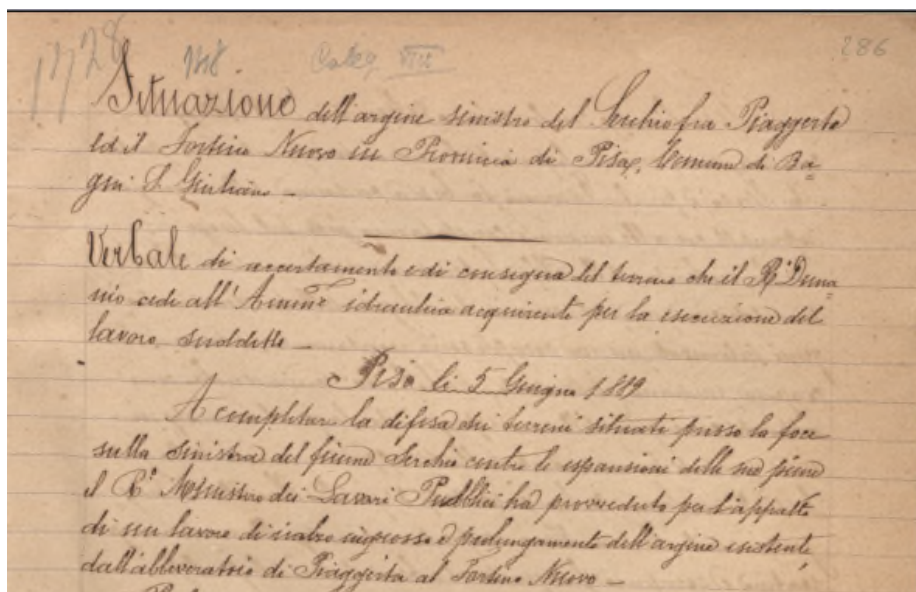 1728 1318 Categ VIII 286
Situazione dell'argine sinistro del Serchio fra Piaggerta
ed il Fortino Nuovo in Provincia di Pisa, Comune di Ba=
gni S. Giuliano —
Verbale di accertamento e di consegna del terreno che il R.° Dema=
nio cede all'Ammne idraulica acquirente per la esecuzione del
lavoro suddetto —
Pisa li 5 Giugno 1889
A completare la difesa dei terreni situati presso la foce
sulla sinistra del fiume Serchio contro le espansioni delle sue piene
il R.° Ministro dei Lavori Pubblici ha provveduto per l'appalto
di un lavoro di rialzo ingrosso e prolungamento dell'argine esistente,
dall'abbeveratoio di Piaggerta al Fortino Nuovo —